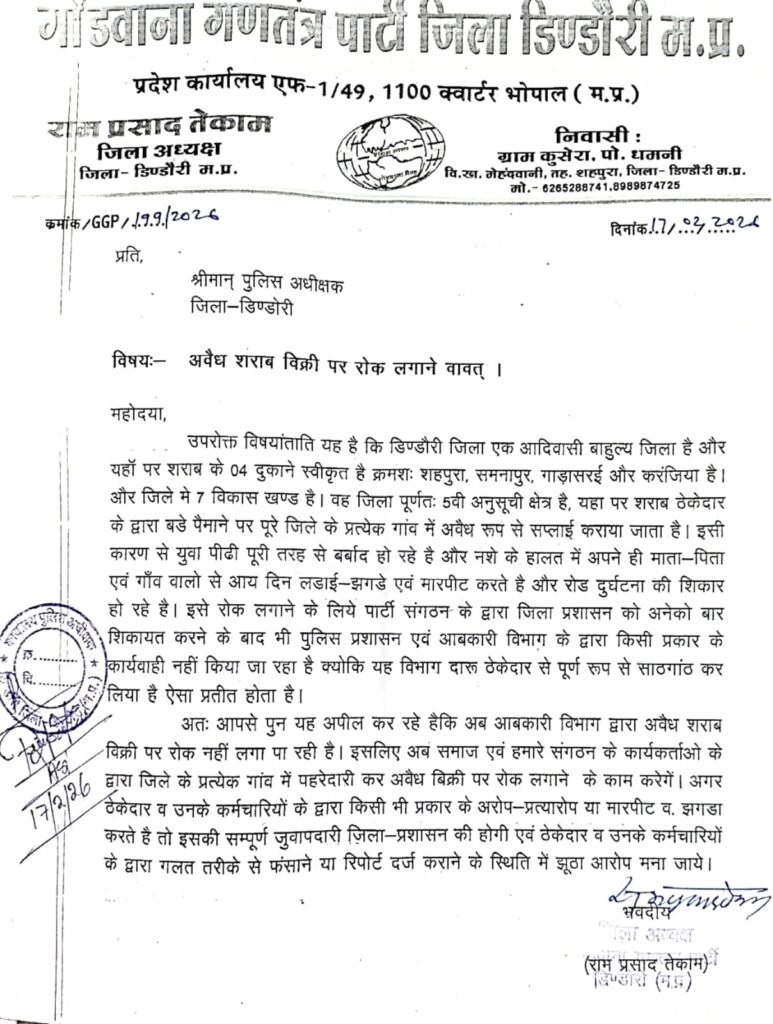 गोंडवाना गणतंत्र पार्टी जिला डिण्डौरी म.प्र.
प्रदेश कार्यालय एफ-1/49, 1100 क्वार्टर भोपाल ( म.प्र.)
राम प्रसाद तेकाम
जिला अध्यक्ष
जिला- डिण्डौरी म.प्र.
निवासी :
ग्राम कुसेरा, पो. धमनी
वि.खा. मेहंदवानी, तह. शहपुरा, जिला- डिण्डौरी म.प्र.
मो.- 6265288741,8989874725
कमांक/GGP/199/2026
दिनांक 17/02/2026
प्रति,
श्रीमान् पुलिस अधीक्षक
जिला–डिण्डोरी
विषयः– अवैध शराब विक्री पर रोक लगाने वावत् ।
महोदया,
उपरोक्त विषयांताति यह है कि डिण्डौरी जिला एक आदिवासी बाहुल्य जिला है और
यहॉ पर शराब के 04 दुकाने स्वीकृत है क्रमशः शहपुरा, समनापुर, गाड़ासरई और करंजिया है।
और जिले मे 7 विकास खण्ड है। वह जिला पूर्णतः 5वी अनुसूची क्षेत्र है, यहा पर शराब ठेकेदार
के द्वारा बडे पैमाने पर पूरे जिले के प्रत्येक गांव में अवैध रूप से सप्लाई कराया जाता है। इसी
कारण से युवा पीढी पूरी तरह से बर्बाद हो रहे है और नशे के हालत में अपने ही माता–पिता
एवं गाँव वालो से आय दिन लडाई–झगडे एवं मारपीट करते है और रोड दुर्घटना की शिकार
हो रहे है। इसे रोक लगाने के लिये पार्टी संगठन के द्वारा जिला प्रशासन को अनेको बार
शिकायत करने के बाद भी पुलिस प्रशासन एवं आबकारी विभाग के द्वारा किसी प्रकार के
कार्यवाही नहीं किया जा रहा है क्योकि यह विभाग दारू ठेकेदार से पूर्ण रूप से साठगांठ कर
लिया है ऐसा प्रतीत होता है।
अतः आपसे पुन यह अपील कर रहे हैकि अब आबकारी विभाग द्वारा अवैध शराब
विक्री पर रोक नहीं लगा पा रही है। इसलिए अब समाज एवं हमारे संगठन के कार्यकर्ताओ के
द्वारा जिले के प्रत्येक गांव में पहरेदारी कर अवैध बिक्री पर रोक लगाने के काम करेगें। अगर
ठेकेदार व उनके कर्मचारियों के द्वारा किसी भी प्रकार के अरोप–प्रत्यारोप या मारपीट व. झगडा
करते है तो इसकी सम्पूर्ण जुवापदारी ज़िला–प्रशासन की होगी एवं ठेकेदार व उनके कर्मचारियों
के द्वारा गलत तरीके से फंसाने या रिपोर्ट दर्ज कराने के स्थिति में झूठा आरोप मना जाये।
17/2/26
भवदीय
जिला अध्यक्ष
(राम प्रसाद तेकाम)
डिण्डौरी (म.प्र)